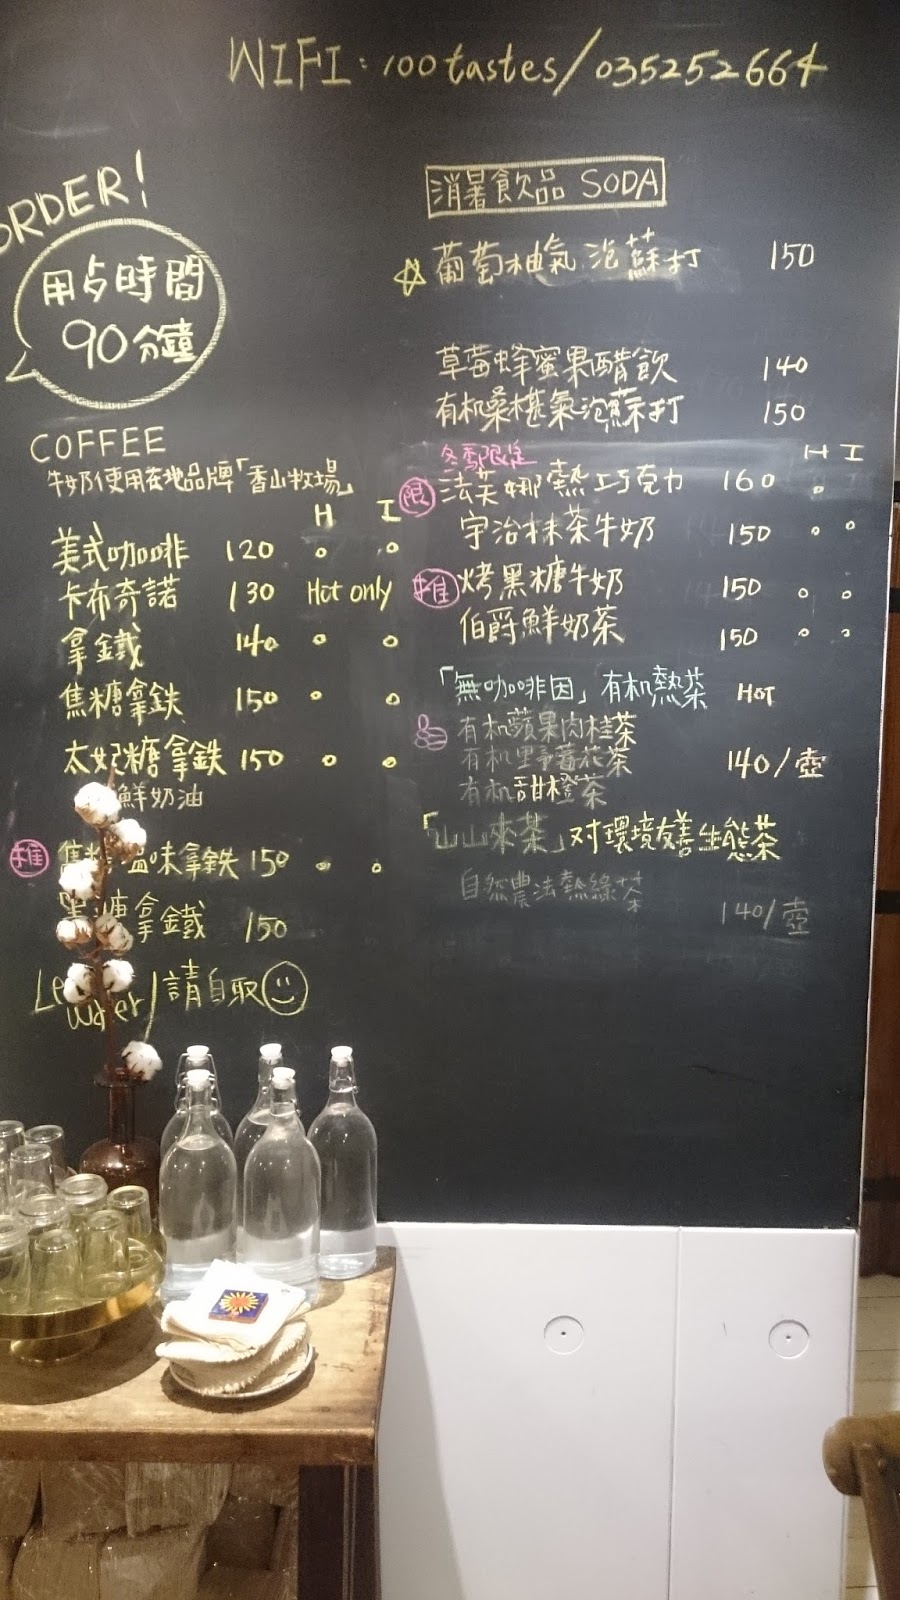 WIFI: 100tastes/035252664
ORDER!
用占時間
90分鐘
COFFEE
牛奶使用在地品牌「香山牧場」
H I
美式咖啡 120
卡布奇諾 130 Hot only
拿鐵 140
焦糖拿鉄 150
太妃糖拿鉄 150
鮮奶油
推 焦糖 味拿鉄 150
糖拿鐵 150
Water/請自取
消暑飲品 SODA
葡萄柚氣泡蘇打 150
草莓蜂蜜果醋飲 140
有机桑椹氣泡蘇打 150
冬季限定 H I
限 法芙娜熱巧克力 160
宇治抹茶牛奶 150
推 烤黑糖牛奶 150
伯爵鮮奶茶 150
「無咖啡因」有机熱茶 HOT
有机蘋果肉桂茶
有机野莓花茶 140/壺
有机甜橙茶
「山山來茶」对環境友善生態茶
自然農法熱綠茶 140/壺